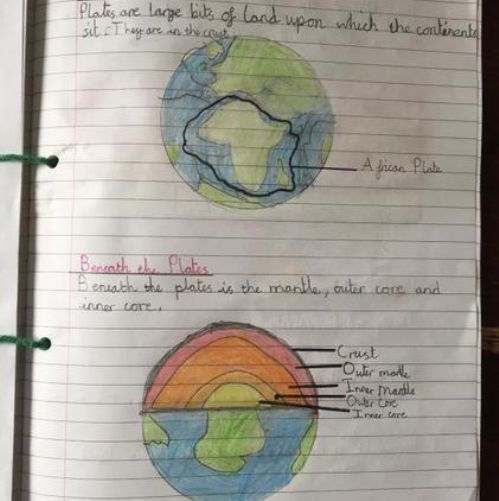 Plates are large bits of land upon which the continents
sit. They are in the crust.
African Plate
Beneath the Plates
Beneath the plates is the mantle, outer core and
inner core.
Crust
Outer mantle
Inner Mantle
Outer Core
Inner core